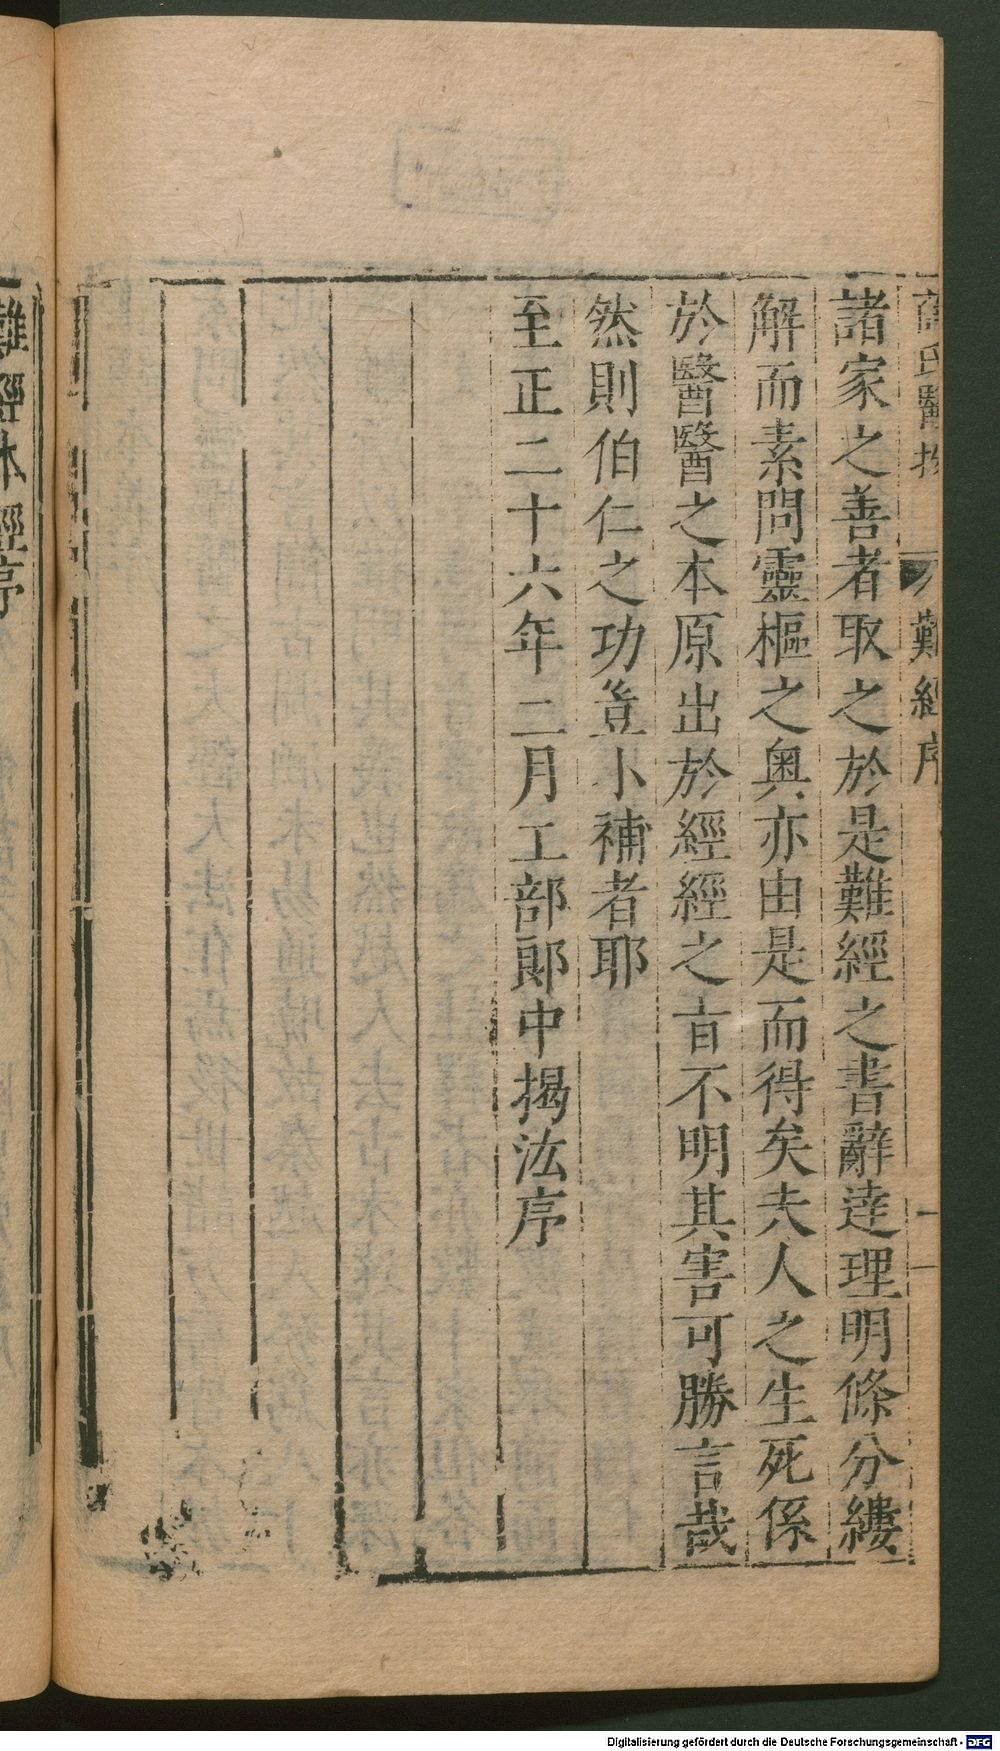 薛氏醫按 難經序 一
諸家之善者取之於是難經之書辭達理明條分縷
解而素問靈樞之奧亦由是而得矣夫人之生死係
於醫醫之本原出於經經之旨不明其害可勝言哉
然則伯仁之功豈小補者耶
至正二十六年二月工部郎中揭汯序
難經本經序
Digitalisierung gefördert durch die Deutsche Forschungsgemeinschaft - DFG